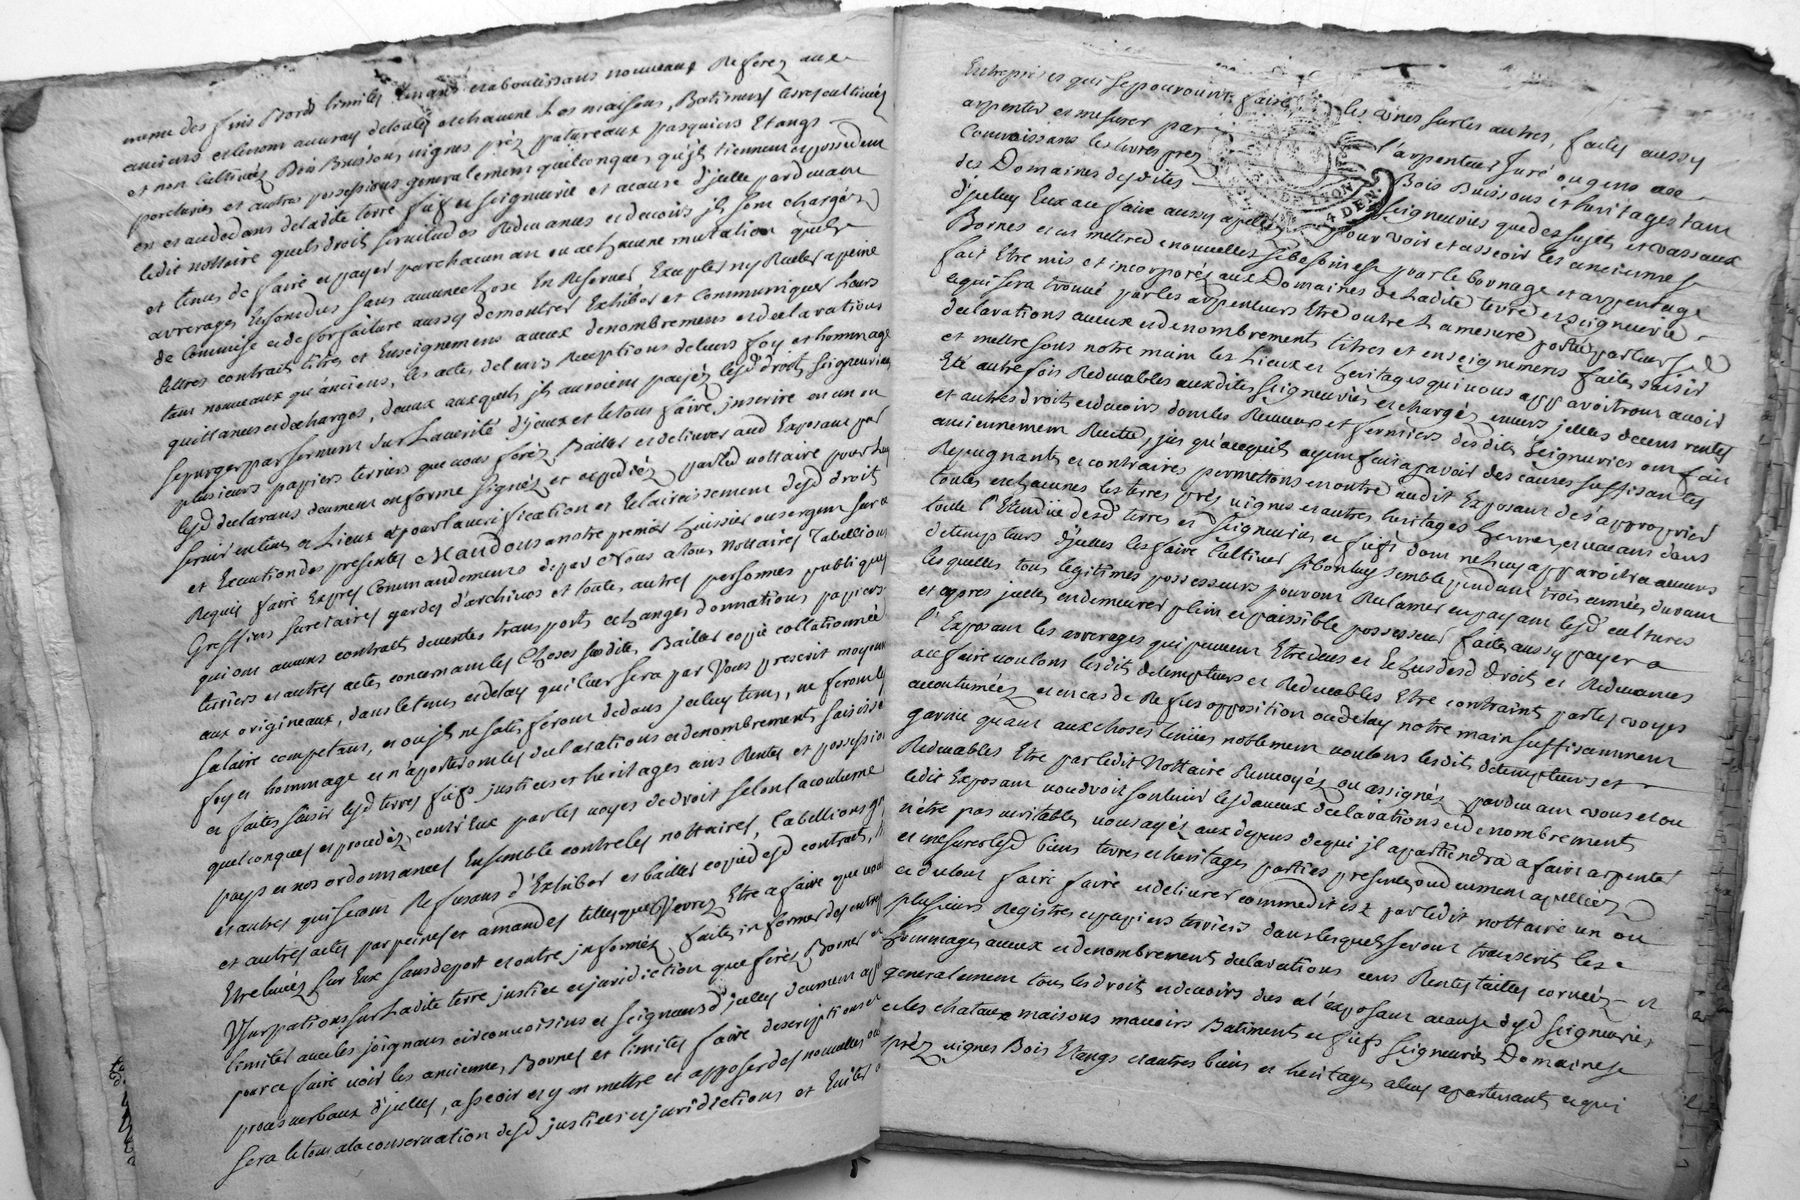 meme des fins Bords limites tenans et aboutissans nouveaux Referez aux
anciens et le nom au vray de toutes et chacune Les maisons, Batimens terres cultivées
et non Cultivées Bois Buissons, vignes près patureaux pasquiers Etangs
porcheries et autres possessions generalement quelconques qu'jls tiennent et possedent
en et au dedans de ladite terre fief et seigneurie et a cause d'jcelle pardevant
ledit nottaire quels droits servitudes Redevances et devoirs jls sont chargés
et tenus de faire et payer par chacun an ou a chacune mutation quels
arrerages En sont dus sans aucune chose En Reserver Excepter ny Receler a peine
de Commise et de forfaiture aussy de montrer Exhiber et Communiquer Leurs
lettres contrats titres et Enseignemens aveux denombremens et declarations
tant nouveaux qu'anciens, les actes de leurs Receptions de leurs foy et hommage
quittances et decharges, de ceux auxquels jls auroient payez lesd. droits seigneuriaux
se purger par serment sur La verité d'jceux et le tous faire jnscrire en un ou
plusieurs papiers terriers que vous ferez Bailler et delivrer aud Exposant par
lesd declarans deument en forme signés et expediés par led nottaire pour Luy
servir en tems et Lieux et pour la verification et Eclaircissement desd droit
et Execution des presentes Mandons a notre premier huissier ou sergent sur ce
Requis faire Expres Commandemens de par Nous a tous Nottaires Tabellions
Greffiers secretaires gardes d'archives et toutes autres personnes publiques
qui ont aucuns contrats de ventes transports echanges donnations papiers
terriers et autres actes concernant les Choses susdites Bailler copie collationnée
aux origineaux, dans le tems et delay qui leur sera par Vous prescrit moyennant
salaire competant, et ou jls ne satisferont dedans jceluy tems, ne feront les
foy et hommage et n'aporteront les declarations et denombrements saisissés
et faites saisir lesd terres fiefs justices et heritages cens Rentes et possessions
quelconques et procedés contr'eux par les voyes de droit selon la coutume
pays et nos ordonnances Ensemble contre les nottaires, tabellions
et autres qui seront Refusans d'Exhiber et bailler copie desd contrats,
et autres actes par peines et amandes telles que Verrez Etre a faire que
Etre levées sur Eux sans deport et outre jnformés faites jnformer des
Usurpations sur Ladite terre justice et juridiction que ferés Borner et
limiter avec les joignans circonvoisins et seigneurs d'jcelles deument
pour ce faire voir les anciennes Bornes et limites faire descriptions et
procés verbaux d'jcelles, asseoir et y en mettre et apposer des nouvelles
sera le tous a la conservation desd justices et juridictions et Eviter
Entreprises qui se pouvoient faire les unes sur les autres, faites aussy
arpenter et mesurer par l'arpenteur Juré ou gens a ce
Connoissans les terres prez Bois Buissons et heritages tant
des Domaines desdites Seigneuries que des sujets et vassaux
d'jceluy Eux a ce faire aussy apellés pour voir et asseoir les anciennes
Bornes et en mettre de nouvelles si besoin est pour le bornage et arpentage
fait Etre mis et jncorporés aux Domaines de Ladite terre et seigneurie
ce qui sera trouvé par les arpenteurs Etre outre La mesure portée par leursd
declarations aveux et denombrements titres et enseignemens faites saisir
et mettre sous notre main les Lieux et heritages qui vous apparoitront avoir
Eté autrefois Redevables auxdites Seigneuries et chargés envers jcelles de cens rentes
et autres droits et devoirs dont les Receveurs et fermiers desdites Seigneuries ont fait
anciennement Recette, jusqu'a ce qu'ils ayent fait aparoir des causes suffisantes
Repugnants et contraires permettons en outre audit Exposant de s'approprier
toutes en chacunes les terres prés vignes et autres heritages hermes et vacans dans
toute l'Etendue desd terres et seigneuries et fiefs dont ne luy apparoitra aucuns
detempteurs d'jcelles les faire Cultiver si bon luy semble pendant trois années durant
lesquelles tous legitimes possesseurs pouront Reclamer en payant lesd cultures
et apres jcelles en demeurer plein et paissible possesseur faites aussy payer a
l'Exposant les arrerages qui peuvent Etre deus et Echus desd droits et Redevances
a ce faire voulons lesdits detempteurs et Redevables Etre contraints par les voyes
accoutumées et en cas de Refus opposition ou delay notre main suffisamment
garnie quant aux choses tenües noblement voulons lesdits detempteurs et
Redevables Etre par ledit Nottaire Renvoyés ou assignés pardevant vous et ou
ledit Exposant voudroit soutenir lesd aveux declarations et denombrement
n'être pas veritables vous ayés aux depens de qui jl apartiendra a faire arpenter
et mesurer lesd biens terres et heritages parties presentes ou deument apellées
et du tout faire faire et delivrer comme dit est par ledit nottaire un ou
plusieurs Registres et papiers terriers dans lesquels seront transcrit les
hommages aveux et denombrements declarations cens Rentes tailles corvées et
generalement tous les droits et devoirs dus a l'exposant a cause desd seigneuries
et les chataux maisons manoirs Batiments et fiefs Seigneuries Domaines
préz vignes Bois Etangs et autres biens et heritages a luy apartenant et qui
DE LYON
4 DEN.